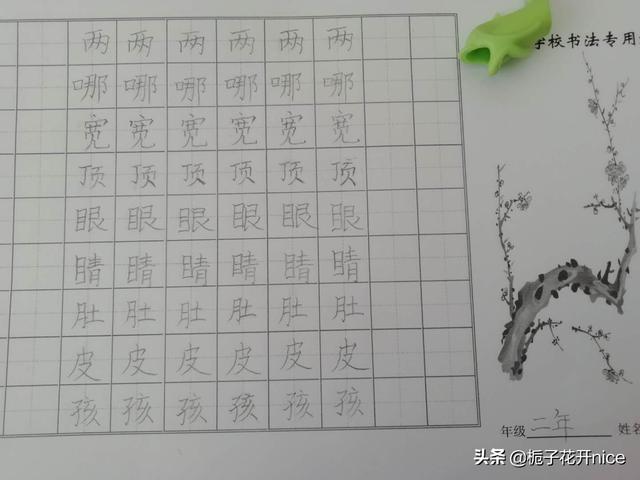 两 两 两 两 两 两
哪 哪 哪 哪 哪 哪
宽 宽 宽 宽 宽 宽
顶 顶 顶 顶 顶 顶
眼 眼 眼 眼 眼 眼
睛 睛 睛 睛 睛 睛
肚 肚 肚 肚 肚 肚
皮 皮 皮 皮 皮 皮
孩 孩 孩 孩 孩 孩
学校书法专用
年级 二年 姓名
头条 @栀子花开nice